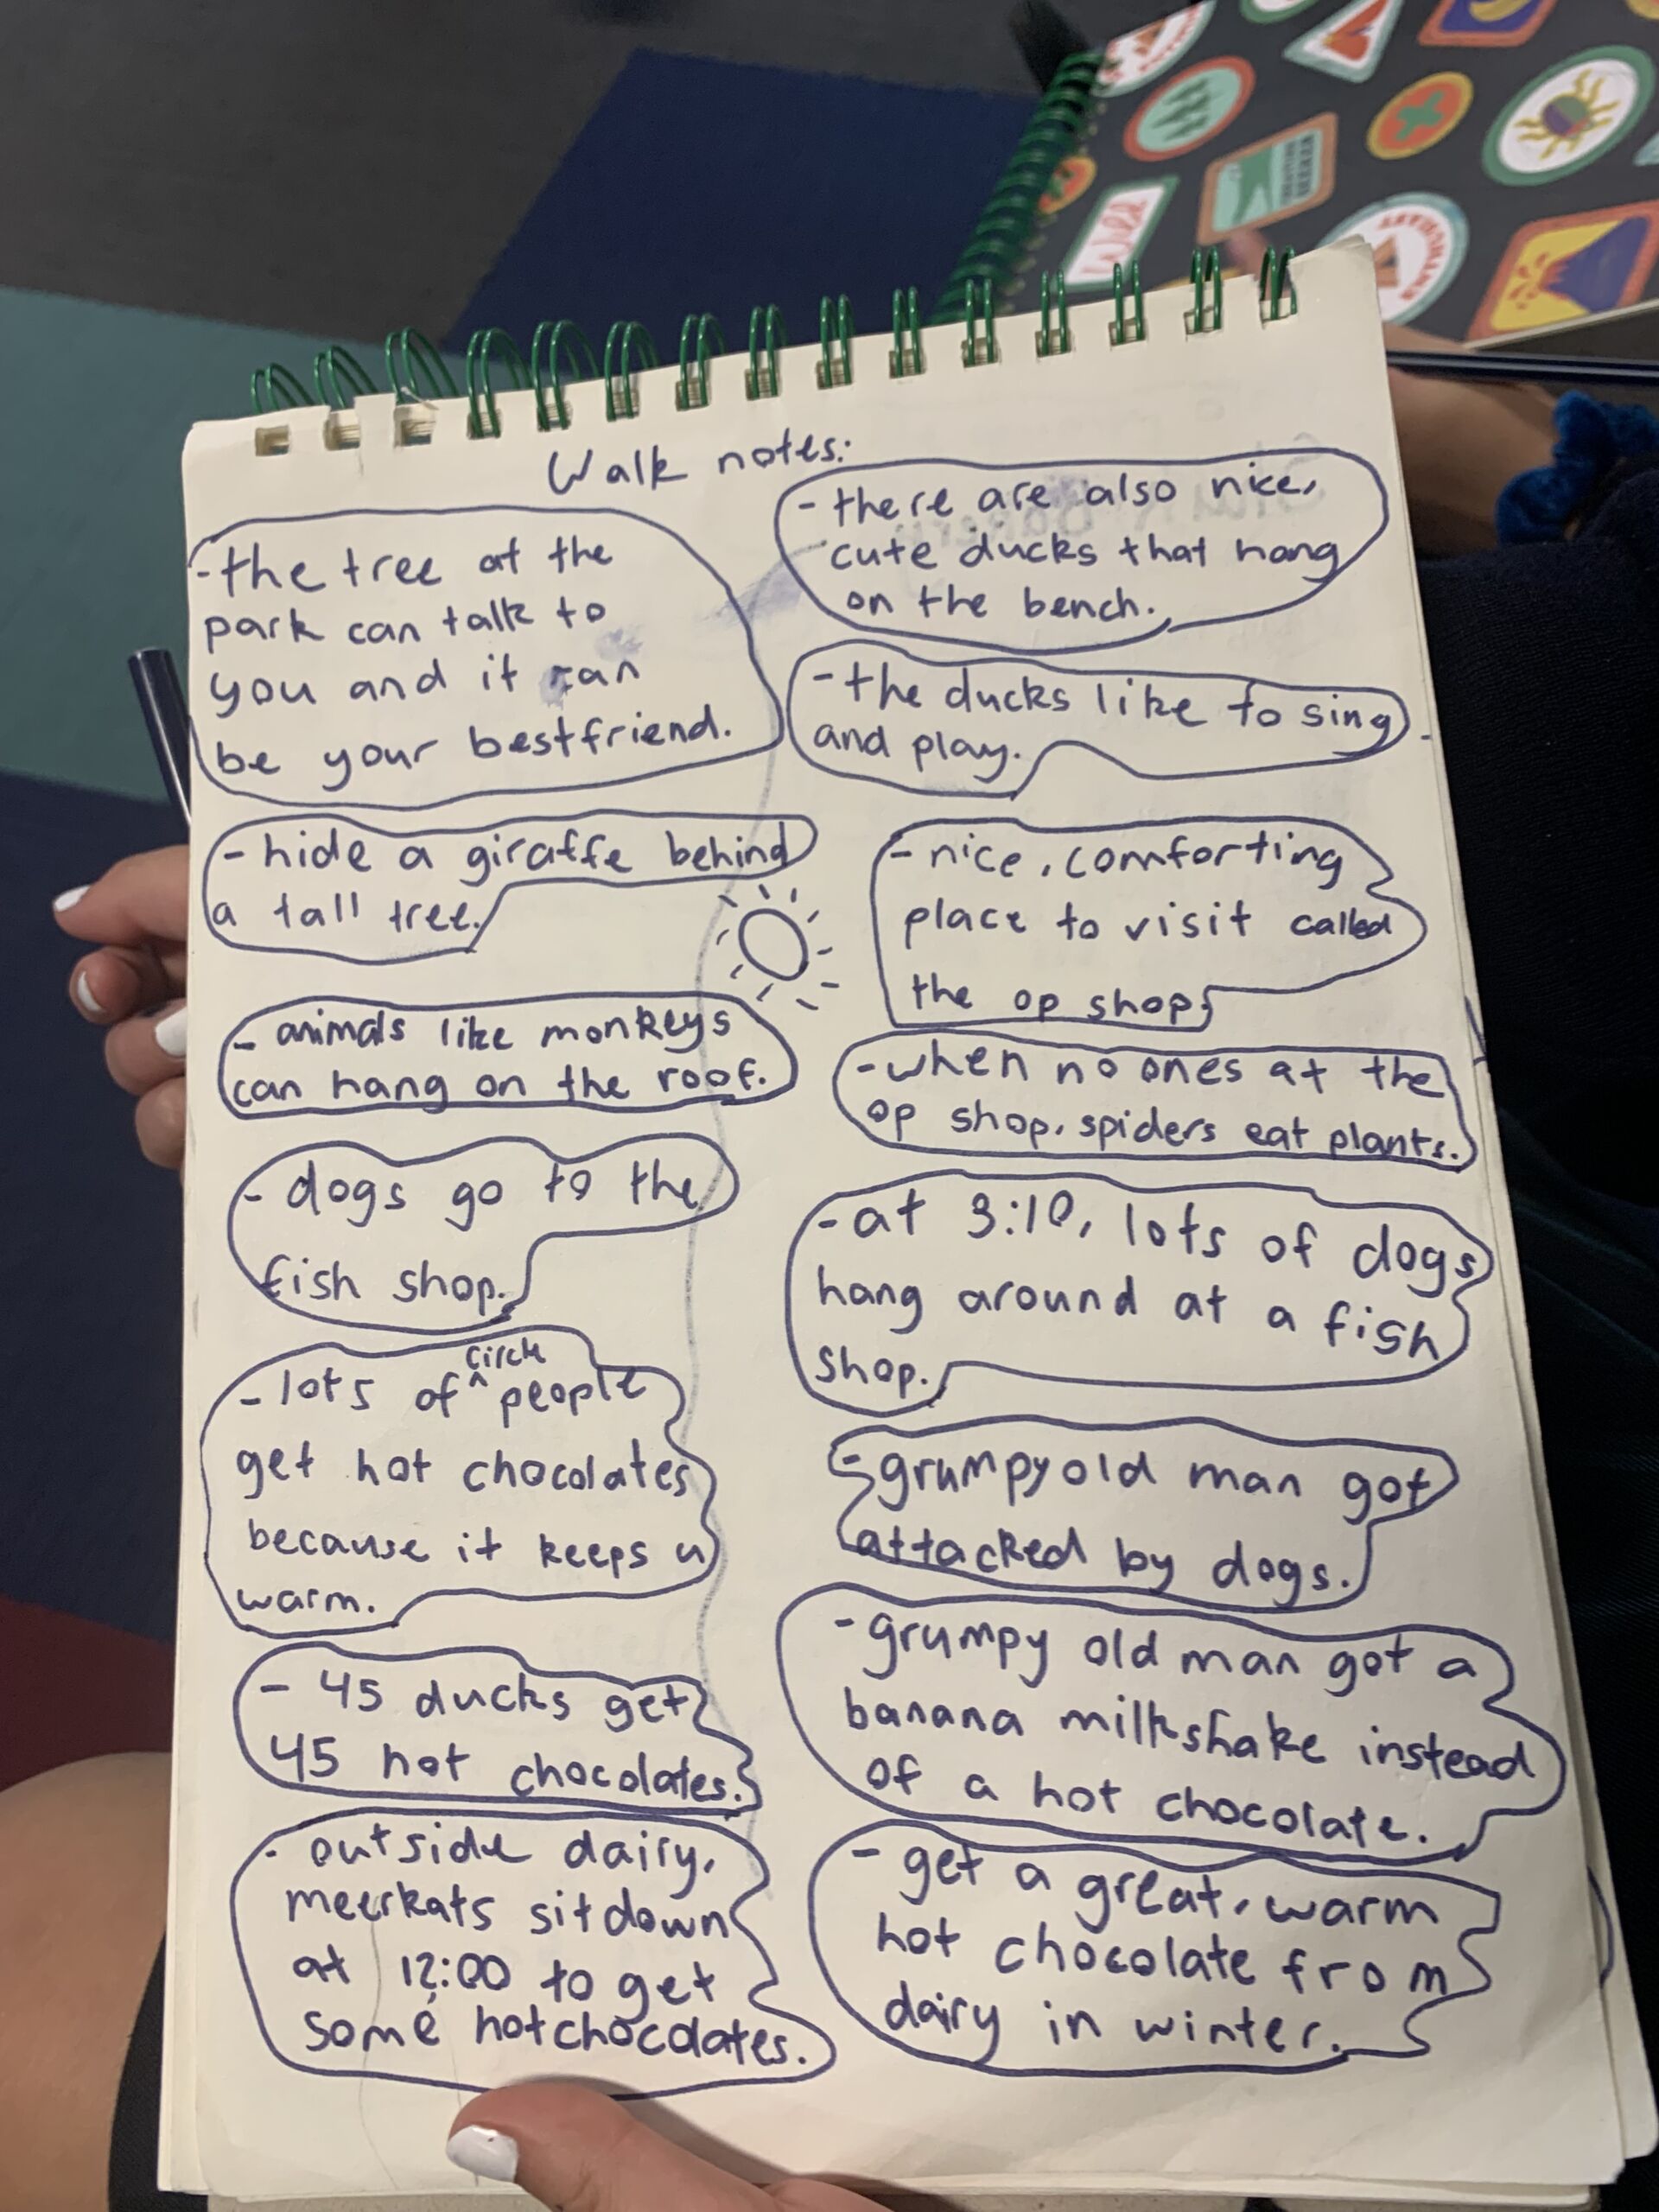 Walk notes:
- the tree at the
park can talk to
you and it can
be your bestfriend.
- hide a giraffe behind
a tall tree.
- animals like monkeys
can hang on the roof.
- dogs go to the
fish shop.
- lots of ^ circle people
get hot chocolates
because it keeps u
warm.
- 45 ducks get
45 hot chocolates.
- outside dairy,
meerkats sit down
at 12:00 to get
some hot chocolates.
- there are also nice,
cute ducks that hang
on the bench.
- the ducks like to sing
and play.
- nice, comforting
place to visit called
the op shop.
- when no ones at the
op shop, spiders eat plants.
- at 3:10, lots of dogs
hang around at a fish
shop.
- grumpy old man got
attacked by dogs.
- grumpy old man got a
banana milkshake instead
of a hot chocolate.
- get a great, warm
hot chocolate from
dairy in winter.
Wild